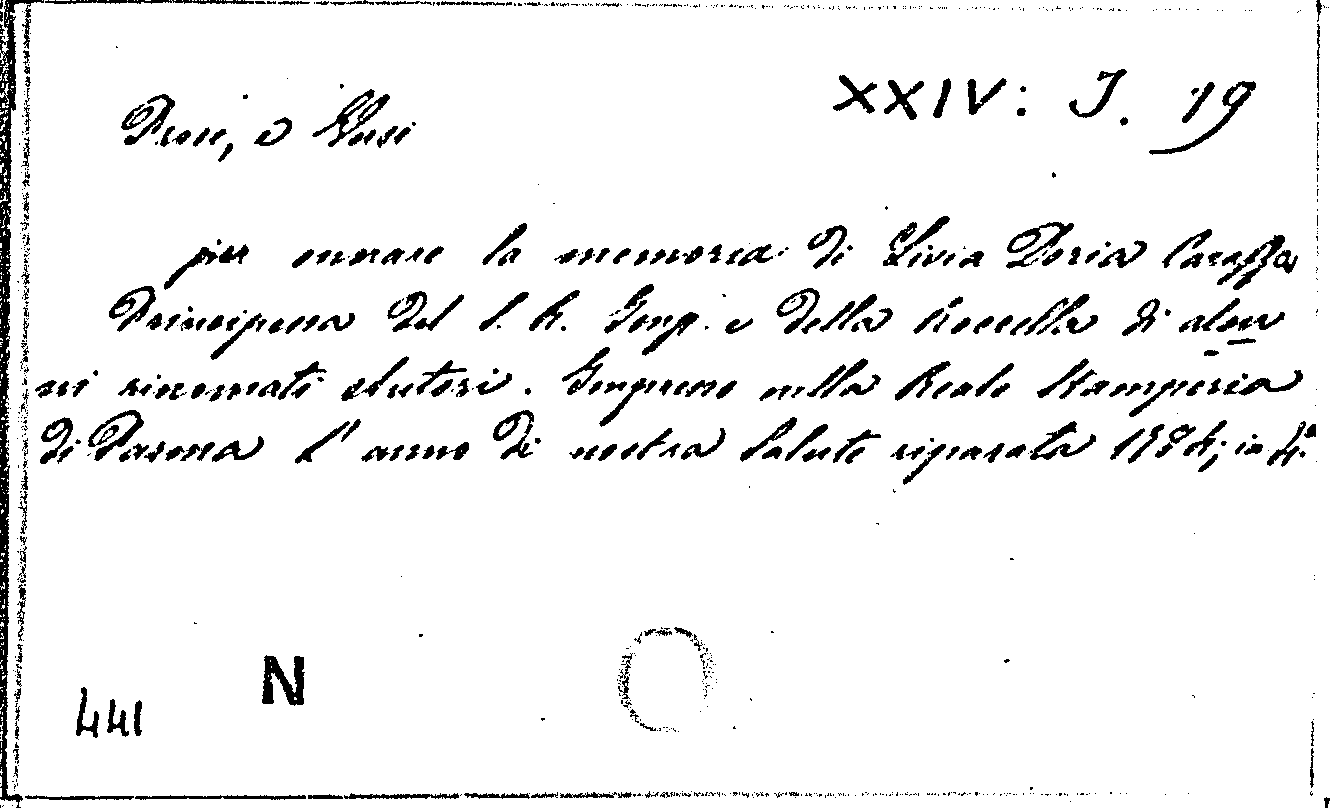 XXIV: J. 19
Prose, e Versi
per onorare la memoria di Livia Doria Caraffa
Principessa del S. R. Imp. e della Roccella di alcu
ni rinomati Autori. Impresso nella Reale Stamperia
di Parma l'anno di nostra Salute riparata 1784; in 4.º
N
441